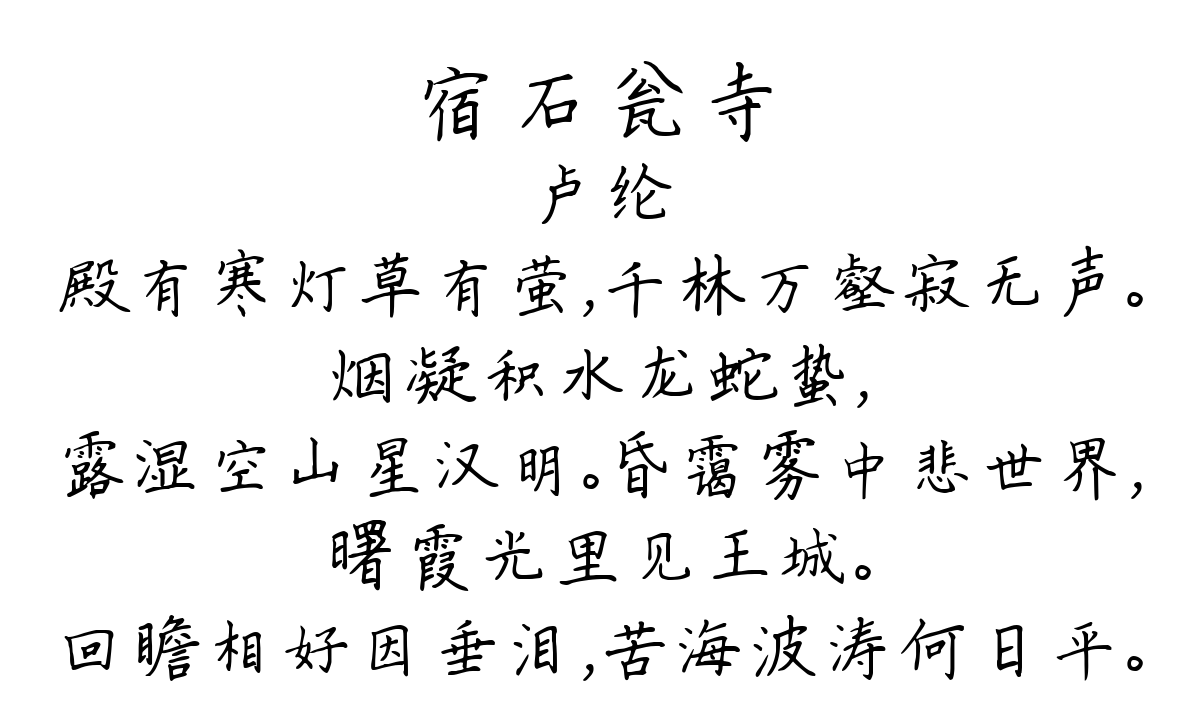 宿石瓮寺
卢纶
殿有寒灯草有萤,千林万壑寂无声。
烟凝积水龙蛇蛰,
露湿空山星汉明。昏霭雾中悲世界,
曙霞光里见王城。
回瞻相好因垂泪,苦海波涛何日平。